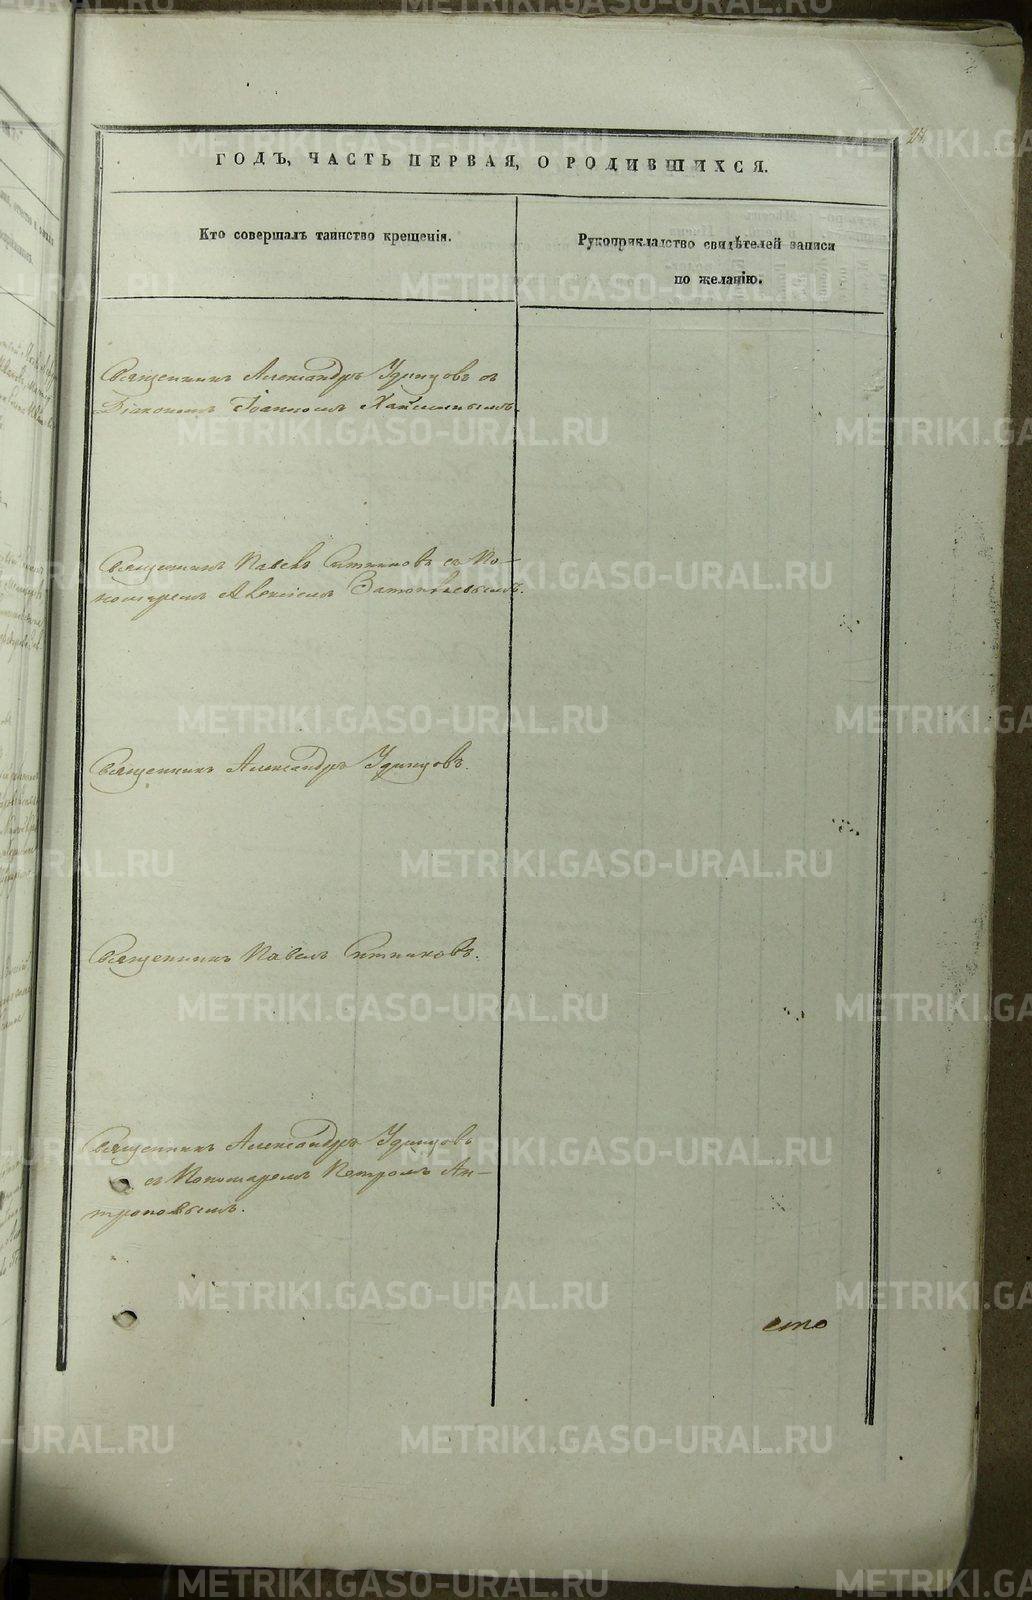 27
ГОДЪ, ЧАСТЬ ПЕРВАЯ, О РОДИВШИХСЯ.
Кто совершалъ таинство крещенія.
Рукоприкладство свидѣтелей записи
по желанію.
Священникъ Александръ Удинцовъ съ
Діакономъ Іоанномъ
Священникъ Павелъ Ситниковъ съ По-
номаремъ Алексіемъ
Священникъ Александръ Удинцовъ.
Священникъ Павелъ Ситниковъ.
Священникъ Александръ Удинцовъ
съ Пономаремъ Петромъ Ан-
троповымъ.
сто
METRIKI.GASO-URAL.RU